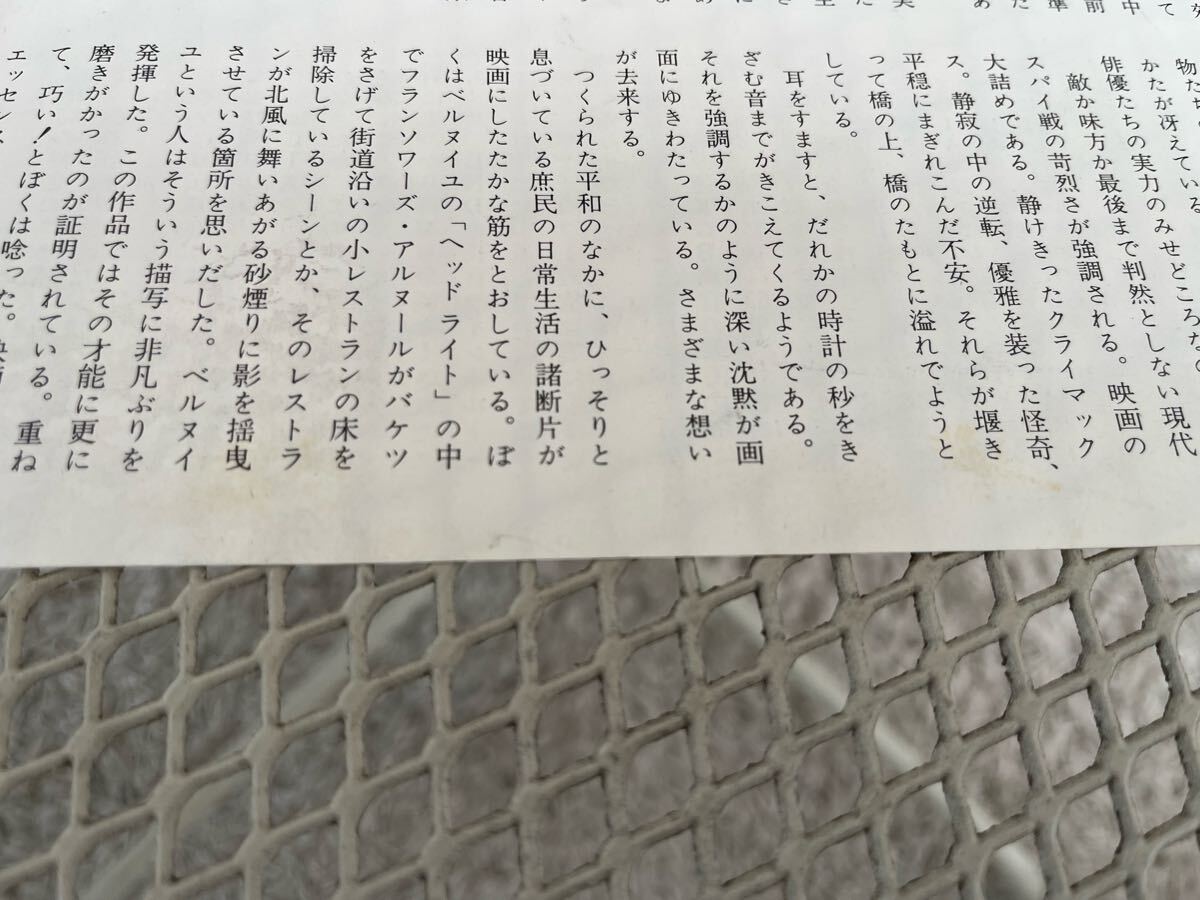 物た
かたが冴えている
俳優たちの実力のみせどころ
敵か味方か最後まで判然としない現代
スパイ戦の苛烈さが強調される。映画の
大詰めである。静けきったクライマック
ス。静寂の中の逆転、優雅を装った怪奇、
平穏にまぎれこんだ不安。それらが堰き
って橋の上、橋のたもとに溢れでようと
している。
耳をすますと、だれかの時計の秒をき
ざむ音までがきこえてくるようである。
それを強調するかのように深い沈黙が画
面にゆきわたっている。さまざまな想い
が去来する。
つくられた平和のなかに、ひっそりと
息づいている庶民の日常生活の諸断片が
映画にしたたかな筋をとおしている。ぼ
くはベルヌイユの「ヘッドライト」の中
でフランソワーズ・アルヌールがバケツ
をさげて街道沿いの小レストランの床を
掃除しているシーンとか、そのレストラ
ンが北風に舞いあがる砂煙りに影を揺曳
させている箇所を思いだした。ベルヌイ
ユという人はそういう描写に非凡ぶりを
発揮した。この作品ではその才能に更に
磨きがかったのが証明されている。重ね
て、巧い！とぼくは唸った。
エッセンス